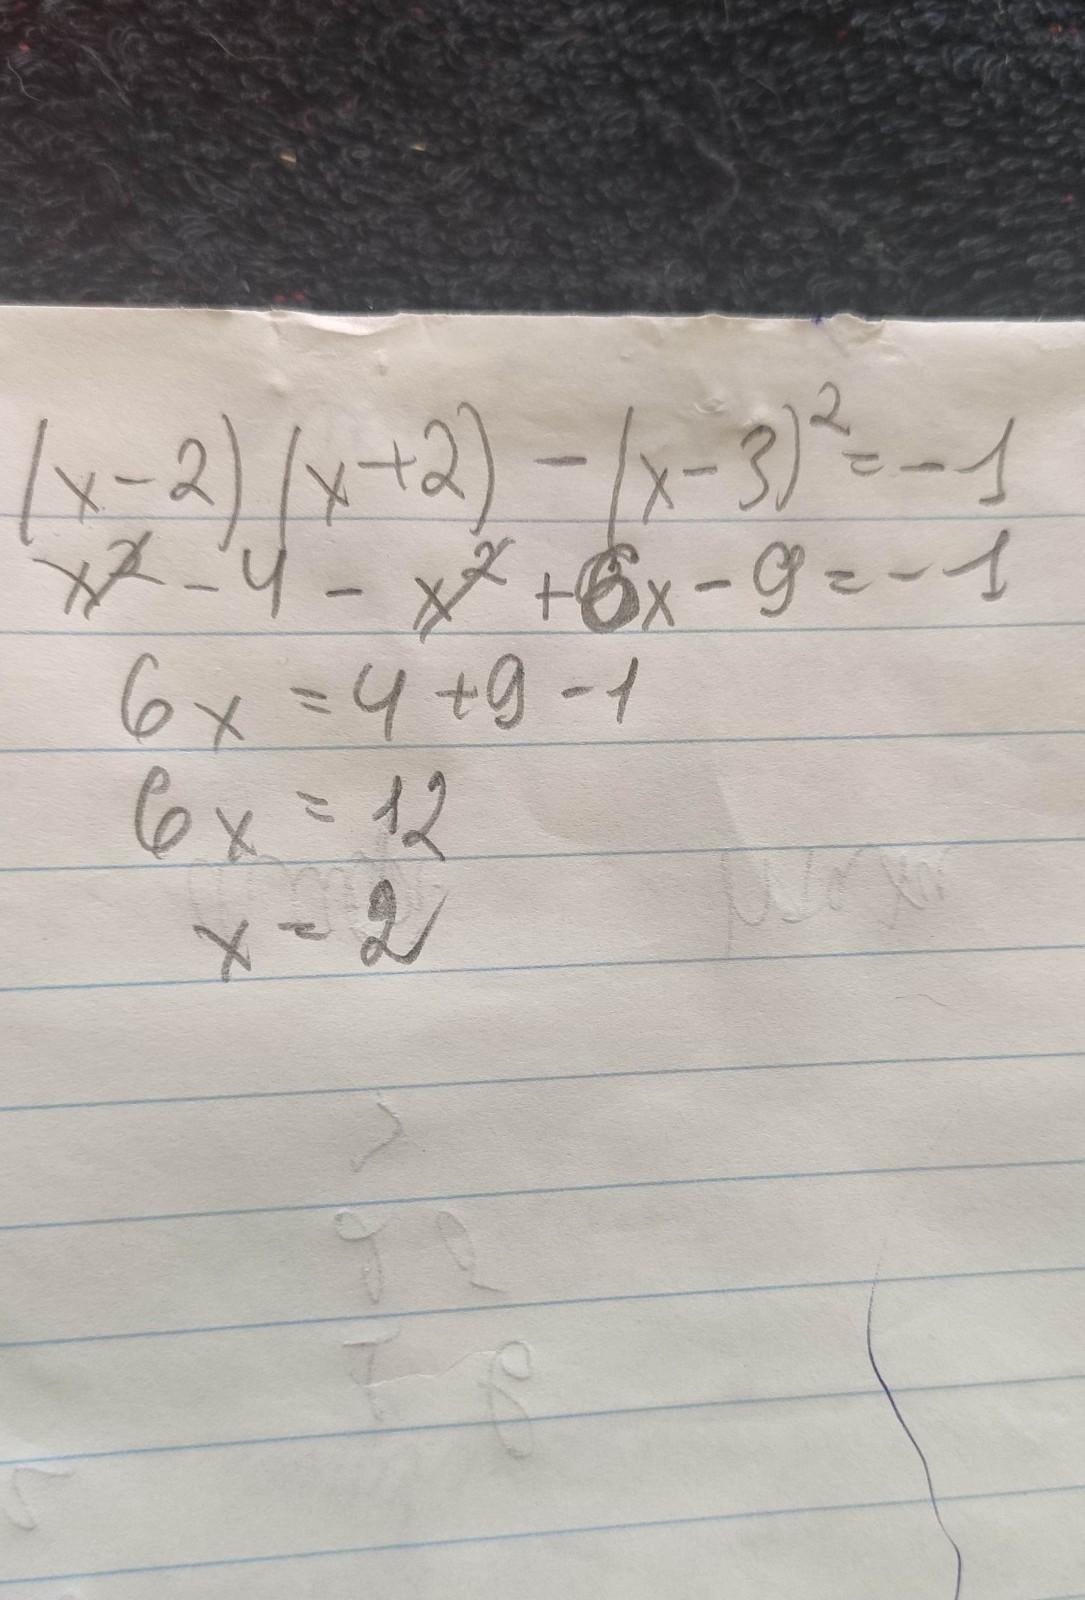 (x-2)(x+2) - (x-3)² = -1
x² - 4 - x² + 6x - 9 = -1
6x = 4 + 9 - 1
6x = 12
x = 2